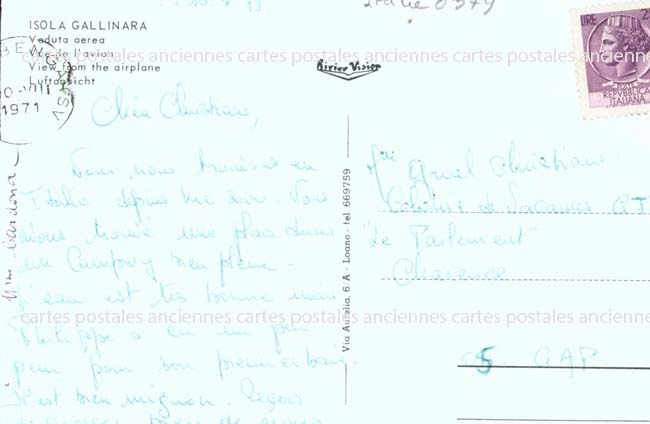 Italie 0379
ISOLA GALLINARA
Veduta aerea
Vue de l'avion
View from the airplane
Luftansicht
1971
Rivier Visier
LIRE 2
POSTE
REPUBBLICA
ITALIANA
cartes postales anciennes cartes postales anciennes cartes postales anciennes
Chère Christiane,
Nous nous trouvons en
Italie depuis hier soir. Nous
avons trouvé une place dans
un Camping bien plein.
L'eau est très bonne mais
Philippe a eu un peu
peur pour son premier bain.
Il est bien mignon. Reçois
Via Aurelia, 6 A - Loano - tel. 669759
Mlle Christiane
Colonie de Vacances
"Le Parlement"
Charance
cartes postales anciennes cartes postales anciennes cartes postales anciennes
05 GAP